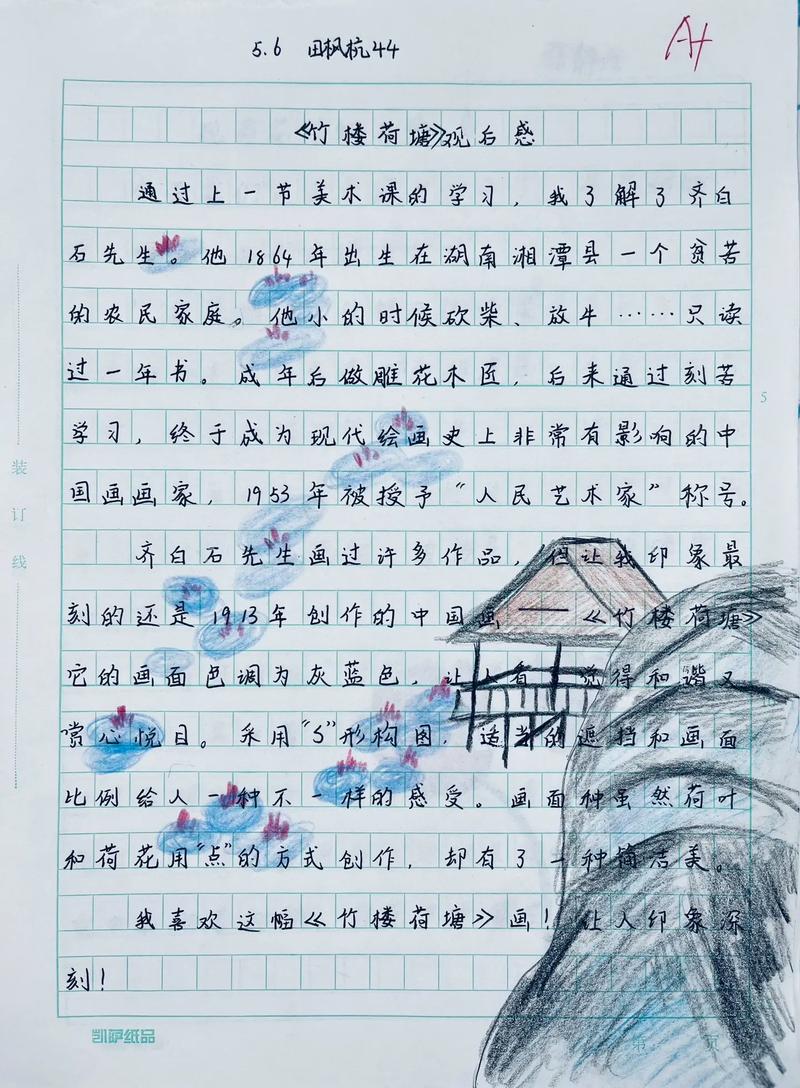 5.6 田枫杭44
A+
《竹楼荷塘》观后感
通过上一节美术课的学习，我了解了齐白
石先生。他1864年出生在湖南湘潭县一个贫苦
的农民家庭。他小的时候砍柴、放牛……只读
过一年书。成年后做雕花木匠，后来通过刻苦
学习，终于成为现代绘画史上非常有影响的中
国画画家，1953年被授予“人民艺术家”称号。
齐白石先生画过许多作品，但让我印象最
刻的还是1913年创作的中国画——《竹楼荷塘》
它的画面色调为灰蓝色，让人看 觉得和谐又
赏心悦目。采用“S”形构图，适当的遮挡和画面
比例给人一种不一样的感受。画面种虽然荷叶
和荷花用“点”的方式创作，却有了一种简洁美。
我喜欢这幅《竹楼荷塘》画！让人印象深
刻！
装订线
5
凯萨纸品
第 页